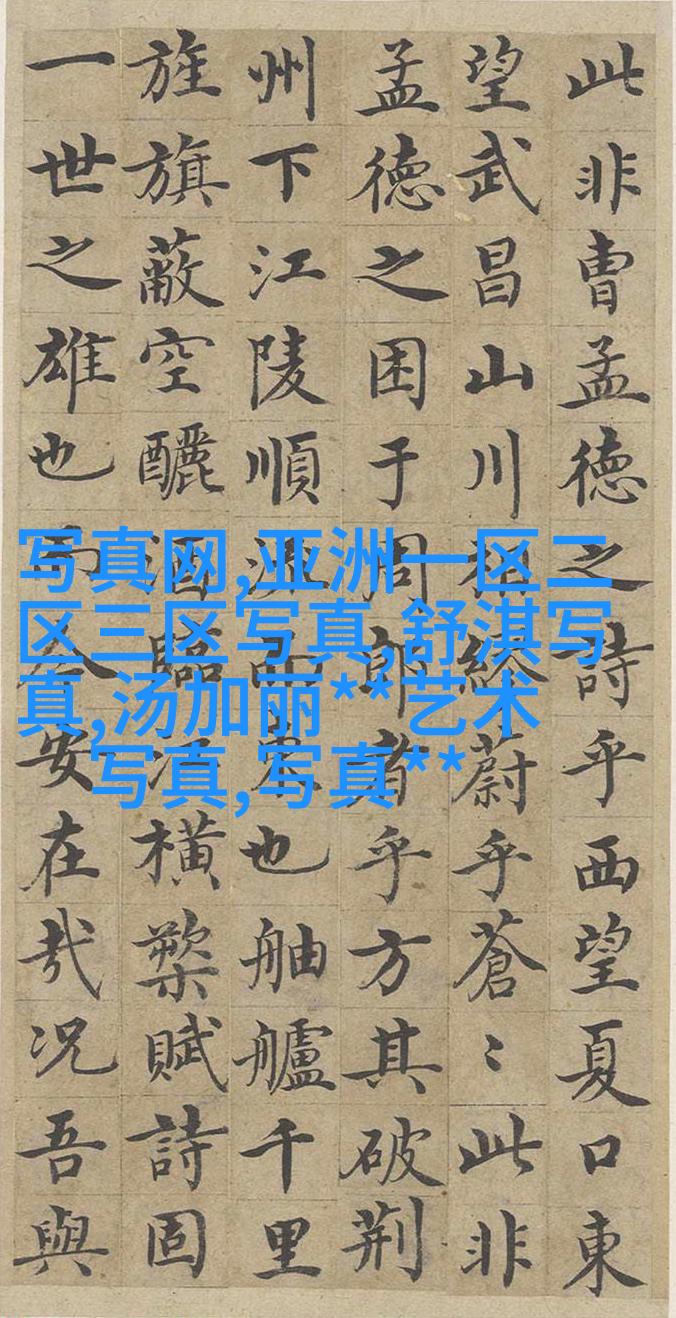 此非曹孟德之詩乎西望夏口東
望武昌山川相繆蔚乎蒼〻此非
孟德之困于周郎者乎方其破荆
州下江陵順流而東也舳艫千里
旌旗蔽空釃酒臨江横槊賦詩固
一世之雄也而今安在哉况吾與
写真网,亚洲一区二
区三区写真,舒淇写
真,汤加丽**艺术
写真,写真**